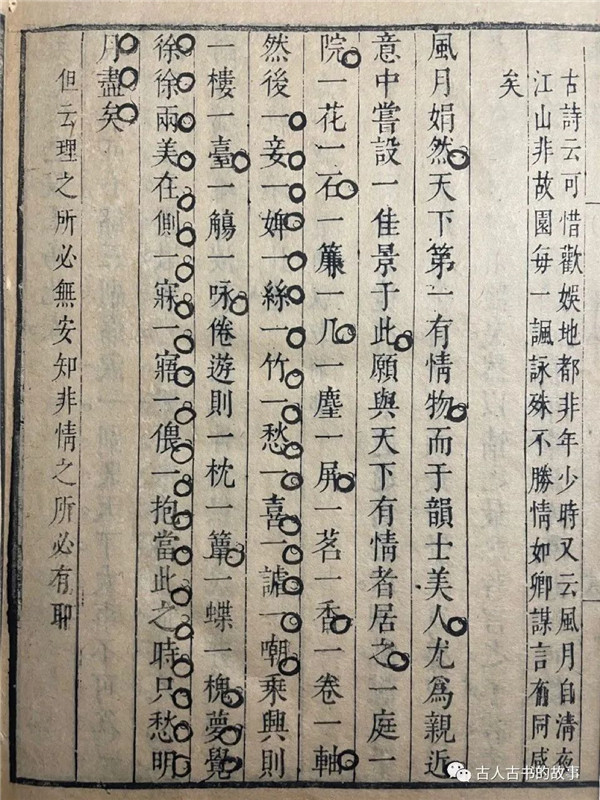 古詩云可惜歡娛地都非年少時又云風月自清夜
江山非故園每一諷詠殊不勝情如卿謀言有同感
矣
風月娟然天下第一有情物而于韻士美人尤爲親近
意中嘗設一佳景于此願與天下有情者居之一庭一
院一花一石一簾一几一麈一屏一茗一香一卷一軸
然後一妾一婢一絲一竹一愁一喜一謔一嘲乘興則
一樓一臺一觴一咏倦遊則一枕一簟一蝶一槐夢覺
徐徐兩美在側一寐一寤一偎一抱當此之時只愁明
月盡矣
但云理之所必無安知非情之所必有耶
古人古书的故事